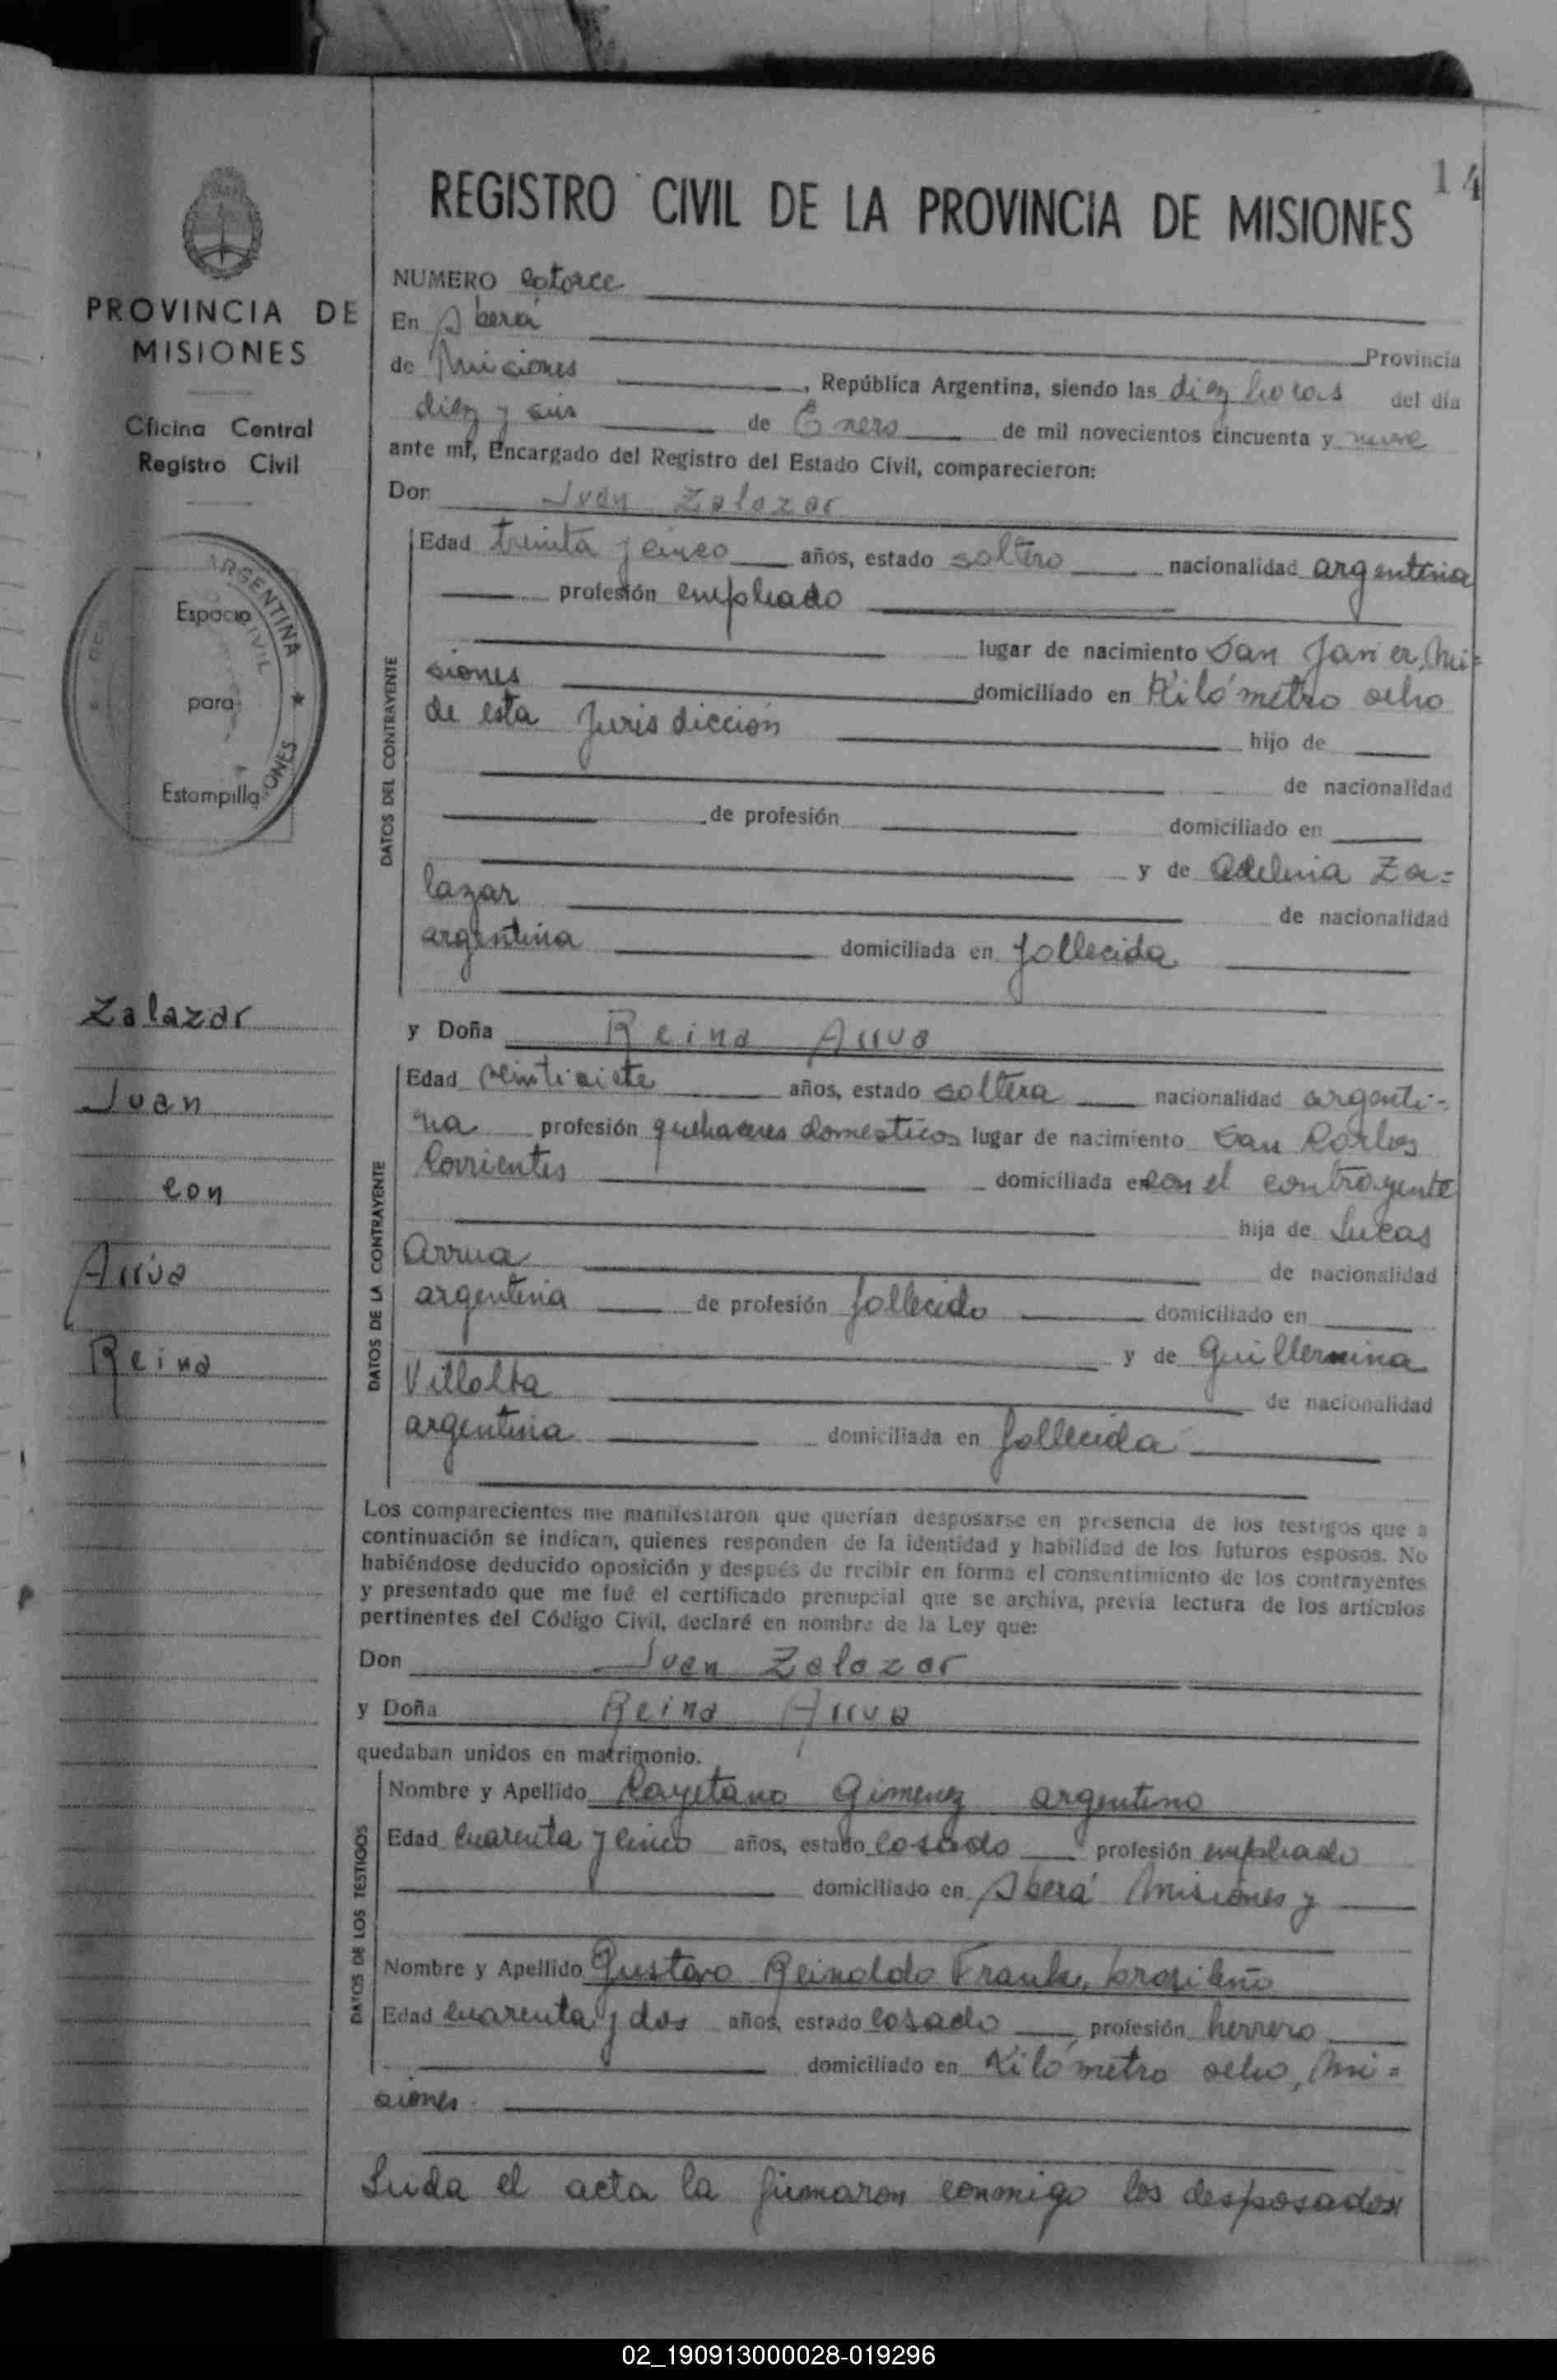 14
REGISTRO CIVIL DE LA PROVINCIA DE MISIONES
PROVINCIA DE
MISIONES
Oficina Central
Registro Civil
ARGENTINA
CIVIL
ONES
Espacio
para
Estampilla
Zalazar
Juan
con
Arrua
Reina
NUMERO catorce
En Aberá
Provincia
de Misiones, República Argentina, siendo las diez horas del día
diez y seis de Enero de mil novecientos cincuenta y nueve
ante mí, Encargado del Registro del Estado Civil, comparecieron:
Don Juan Zalazar
DATOS DEL CONTRAYENTE
Edad treinta y cinco años, estado soltero nacionalidad argentina
profesión empleado
lugar de nacimiento San Javier, Mi=
siones domiciliado en Kilómetro ocho
de esta Jurisdicción hijo de
de nacionalidad
de profesión domiciliado en
y de Adelina Za=
lazar de nacionalidad
argentina domiciliada en fallecida
y Doña Reina Arrua
DATOS DE LA CONTRAYENTE
Edad veintisiete años, estado soltera nacionalidad argenti-
na profesión quehaceres domesticos lugar de nacimiento San Carlos
Corrientes domiciliada en con el contrayente
hija de Lucas
Arrua de nacionalidad
argentina de profesión fallecido domiciliado en
y de Guillermina
Villalba de nacionalidad
argentina domiciliada en fallecida
Los comparecientes me manifestaron que querían desposarse en presencia de los testigos que a
continuación se indican, quienes responden de la identidad y habilidad de los futuros esposos. No
habiéndose deducido oposición y después de recibir en forma el consentimiento de los contrayentes
y presentado que me fué el certificado prenupcial que se archiva, previa lectura de los artículos
pertinentes del Código Civil, declaré en nombre de la Ley que:
Don Juan Zalazar
y Doña Reina Arrua
quedaban unidos en matrimonio.
DATOS DE LOS TESTIGOS
Nombre y Apellido Cayetano Gimenez argentino
Edad cuarenta y cinco años, estado casado profesión empleado
domiciliado en Aberá Misiones y
Nombre y Apellido Gustavo Reinaldo Franke, brasileño
Edad cuarenta y dos años, estado casado profesión herrero
domiciliado en Kilómetro ocho, Mi=
siones
Leida el acta la firmaron conmigo los desposados
02_190913000028-019296